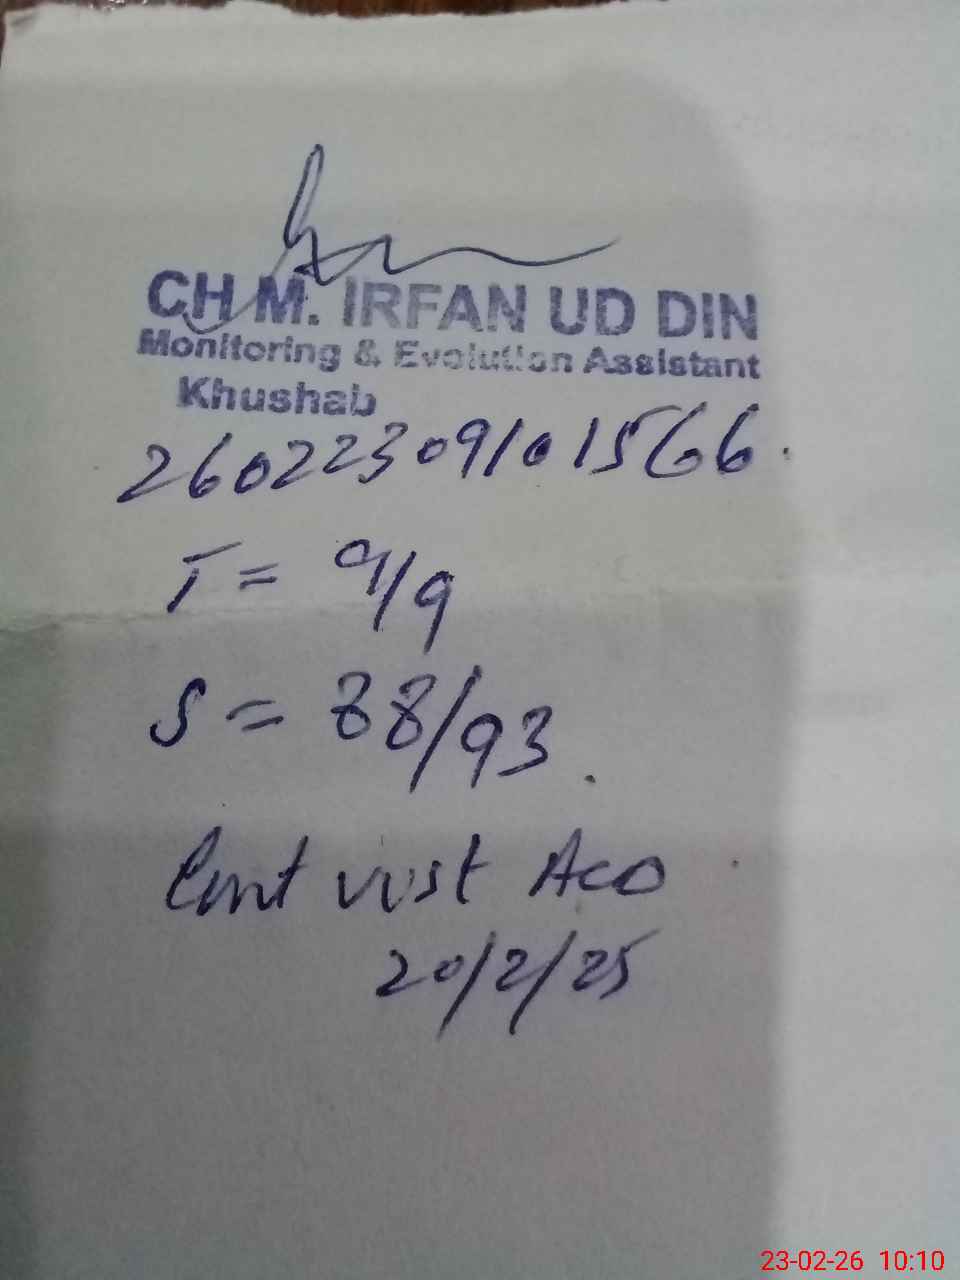 CH M. IRFAN UD DIN
Monitoring & Evolution Assistant
Khushab
26022309101566
T = 9/9
S = 88/93
vist
20/2/25
23-02-26 10:10